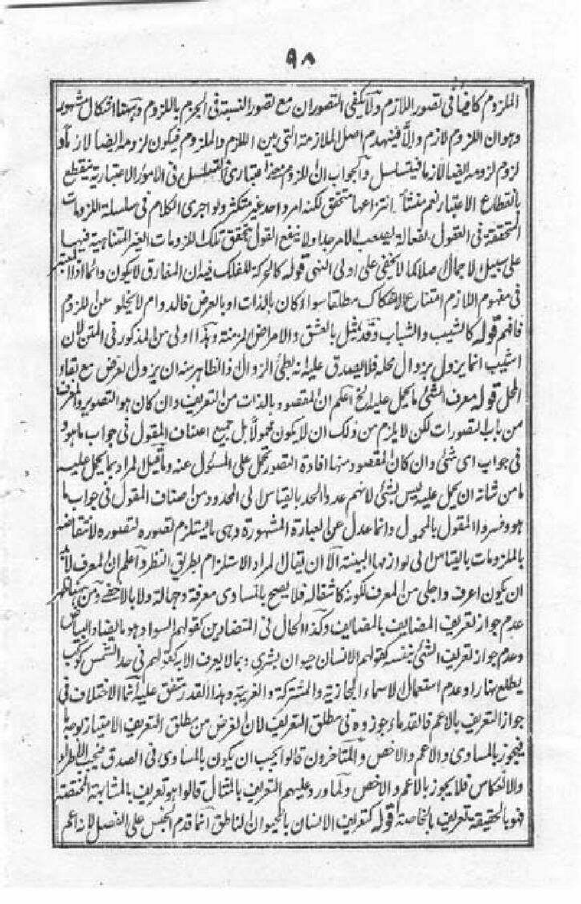 ٩٨
الملزوم كافيا فى تصور اللازم ولا يكفى التصوران مع تصور النسبة فى الجزم باللزوم وههنا اشكال مشهور
وهو ان اللزوم لازم والا فينهدم اصل الملازمة التى بين اللازم والملزوم فيكون لزومه ايضا لازما و
لزوم لزومه ايضا لازما فيتسلسل والجواب ان اللزوم اعتبارى والتسلسل فى الامور الاعتبارية ينقطع
بانقطاع الاعتبار نعم منشأ انتزاعها متحقق لكنه امر واحد غير متكثر ولو اجرى الكلام فى سلسلة اللزومات
المتحققة فى العقول الفعالة يصعب الامر جدا ولا ينفع القول بتحقق تلك اللزومات الغير المتناهية فيها
على سبيل الاجمال كما لا يخفى على اولى النهى قوله كالحركة للفلك فيه ان المفارق لا يكون دائما اذ المعتبر
فى مفهوم اللازم امتناع الانفكاك مطلقا سواء كان بالذات او بالعرض فالدوام لا يخلو عن اللزوم
فافهم قوله كالشيب والشباب وقد يمثل بالعشق والامراض المزمنة وهذا اولى من المذكور فى المتن لان
الشيب انما يزول بزوال محله فلا يصدق عليه انه بطئ الزوال اذ الظاهر منه ان يزول العرض مع بقاء
المحل قوله معرف الشئ ما يحمل عليه الخ اعلم ان المقصود بالذات من التعريف وان كان هو التصوير والمعرف
من باب التصورات لكن لا يلزم من ذلك ان لا يكون محمولا بل جميع اصناف المقول فى جواب ما هو و
فى جواب اى شئ وان كان المقصود منها افادة التصور تحمل على المسئول عنه وما قيل المراد بما يحمل عليه
ما من شانه ان يحمل عليه ليس بشئ لانهم عدوا الحد بالقياس الى المحدود من اصناف المقول فى جواب ما
هو وفسروا المقول بالمحمول وانما عدل عن العبارة المشهورة وهى ما يستلزم تصوره تصوره لانتقاضه
بالملزومات بالقياس الى لوازمها البينة الا ان يقال المراد الاستلزام بطريق النظر واعلم ان المعرف لابد
ان يكون اعرف واجلى من المعرف لكونه كاشفا له فلا يصح بالمساوى معرفة وجهالة ولا بالاخفى ومن ههنا ظهر
عدم جواز تعريف المضايف بالمضايف وكذا الحال فى المتضادين كقولهم السواد هو ما يضاد البياض
وعدم جواز تعريف الشئ بنفسه كقولهم الانسان حيوان بشرى وبما لا يعرف الا به كقولهم فى حد الشمس كوكب
يطلع نهارا وعدم استعمال الاسماء المجازية والمشتركة والغريبة وهذا القدر متفق عليه انما الاختلاف فى
جواز التعريف بالاعم فالقدماء جوزوه فى مطلق التعريف لان الغرض من مطلق التعريف الامتياز بوجه ما
فيجوز بالمساوى والاعم والاخص والمتاخرون قالوا يجب ان يكون بالمساوى فى الصدق فيجب الاطراد
والانعكاس فلا يجوز بالاعم والاخص ولما ورد عليهم التعريف بالمثال قالوا هو تعريف بالمشابهة المختصة
فهو بالحقيقة تعريف بالخاصة قوله كتعريف الانسان بالحيوان الناطق انما قدم الجنس على الفصل لانه اعم